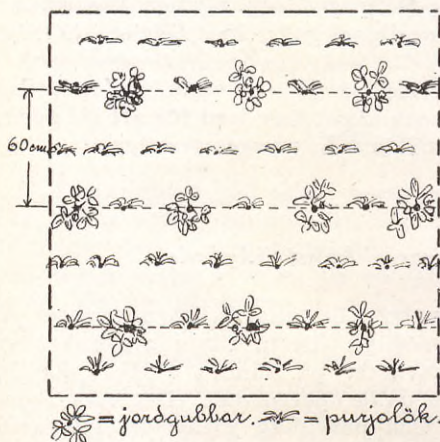 60cm
= jordgubbar. = purjolök.